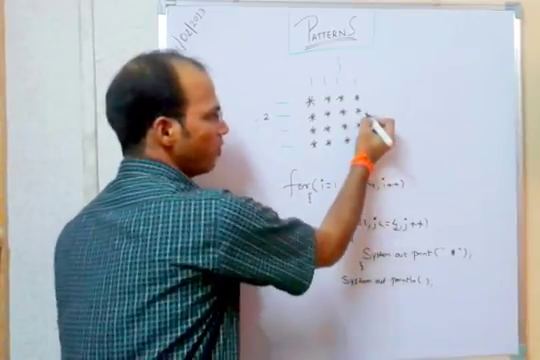 /02/2013
PATTERNS
* * * *
2 * * * *
* * *
* * *
for(i=1 4, i++)
{
j<=4, j++)
System.out.print("*");
}
System.out.println( );